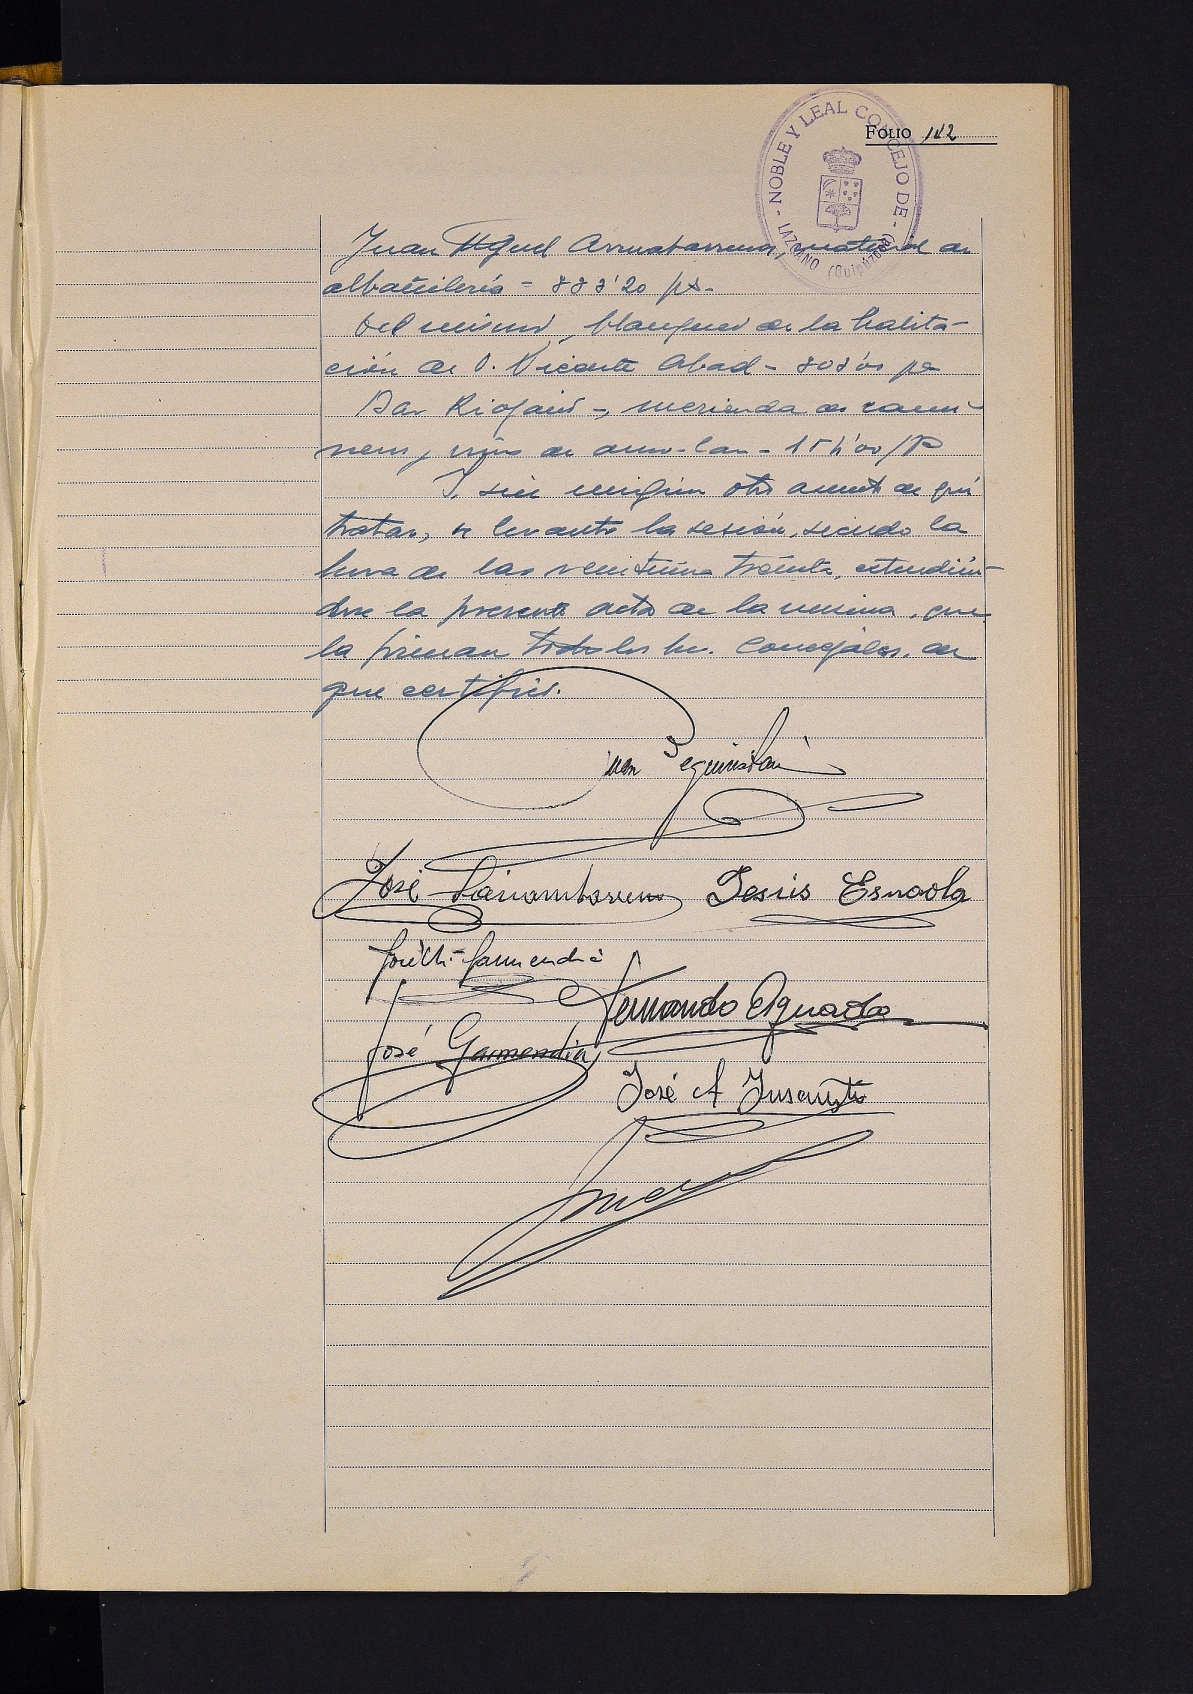 FOLIO 112
- NOBLE Y LEAL CONCEJO DE -
LAZCANO (Guipúzcoa)
Juan Miguel Arruabarrena, material de
albañilería - 883'20 pts-
Del mismo, blanqueo de la habita-
ción de D. Vicente Abad -
Bar Riojano -, merienda de
de
Y, sin ningún otro asunto de que
tratar, se levantó la sesión, siendo la
hora de las veintiuna treinta, extendién-
dose la presente acta de la misma, que
la firman todos los Sres. Concejales, de
que certifico.
Juan Eguiristain
José Lainambarrena Jesús Esnaola
José Mª Garmendia
Fernando Aguado
José Garmendia
José A